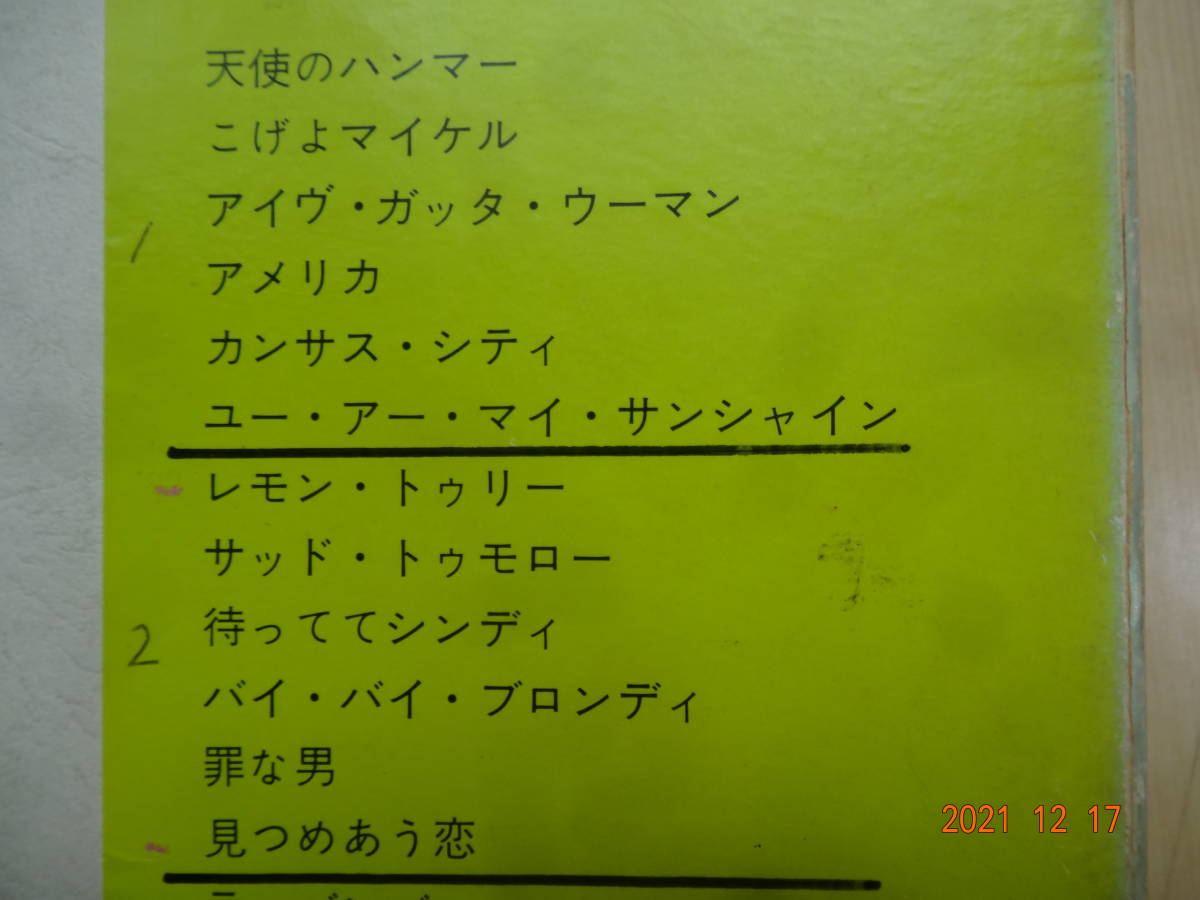 天使のハンマー
こげよマイケル
アイヴ・ガッタ・ウーマン
1
アメリカ
カンサス・シティ
ユー・アー・マイ・サンシャイン
レモン・トゥリー
サッド・トゥモロー
待っててシンディ
2
バイ・バイ・ブロンディ
罪な男
見つめあう恋
2021 12 17